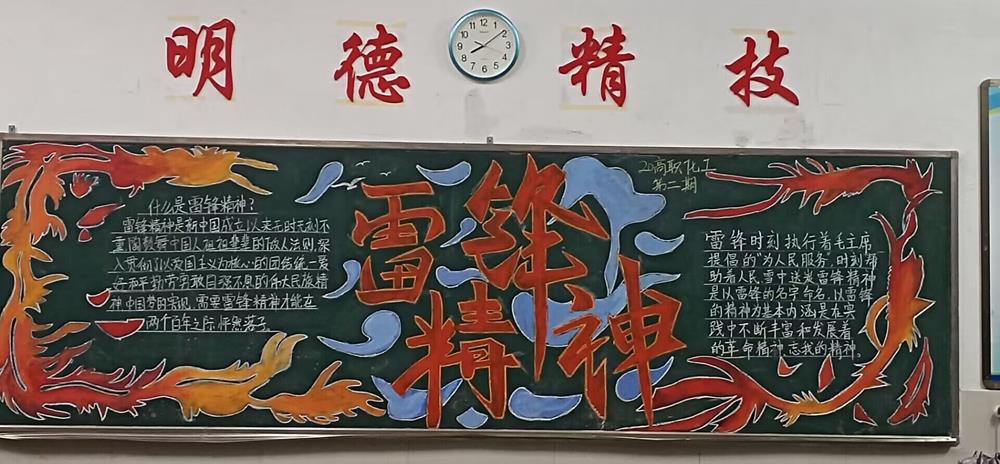 明德精技
20高职化工
第二期
雷锋
精神
什么是雷锋精神?
雷锋精神是新中国成立以来无时无刻不
中国人 的做人法则,深
入贯彻了以爱国主义为核心的团结统一爱
好和平勤劳勇敢自强不息的伟大民族精
神中国梦的实现,需要雷锋精神才能在
两个百年之际,怦然落子。
雷锋时刻执行着毛主席
提倡的“为人民服务”,时刻帮
助着人民,雪中送炭雷锋精神
是以雷锋的名字命名,以雷锋
的精神为基本内涵是在实
践中不断丰富和发展着
的革命精神,忘我的精神。